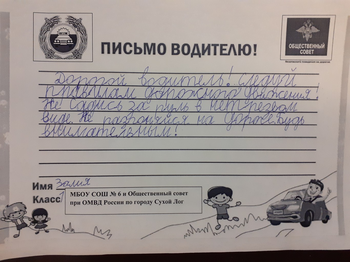 ПИСЬМО ВОДИТЕЛЮ!
ОБЩЕСТВЕННЫЙ
СОВЕТ
Дорогой водитель! Следуй
правилам дорожного движения!
Не садись за руль в нетрезвом
виде. Не разгоняйся на дороге. Будь
внимательным!
Имя Залия
Класс
МБОУ СОШ № 6 и Общественный совет
при ОМВД России по городу Сухой Лог